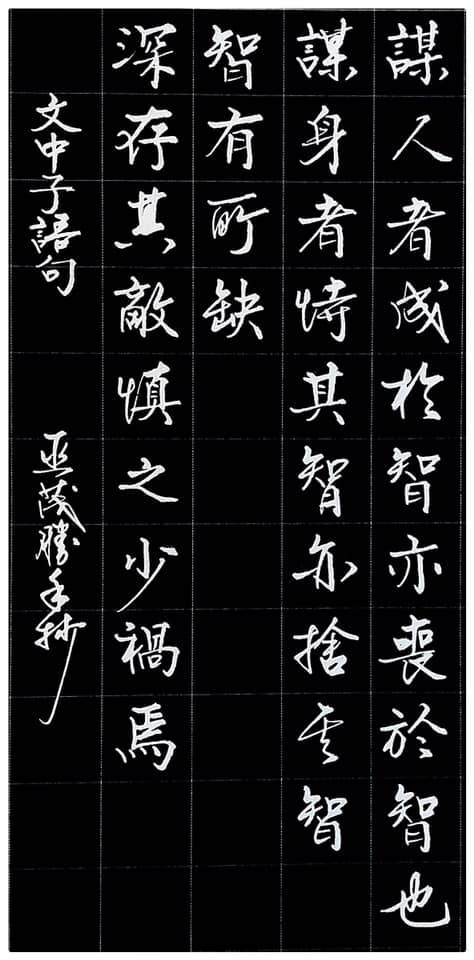 謀人者成於智亦喪於智也
謀身者恃其智亦捨其智
智有所缺
深存其敵慎之少禍焉
文中子語句
茂勝手抄